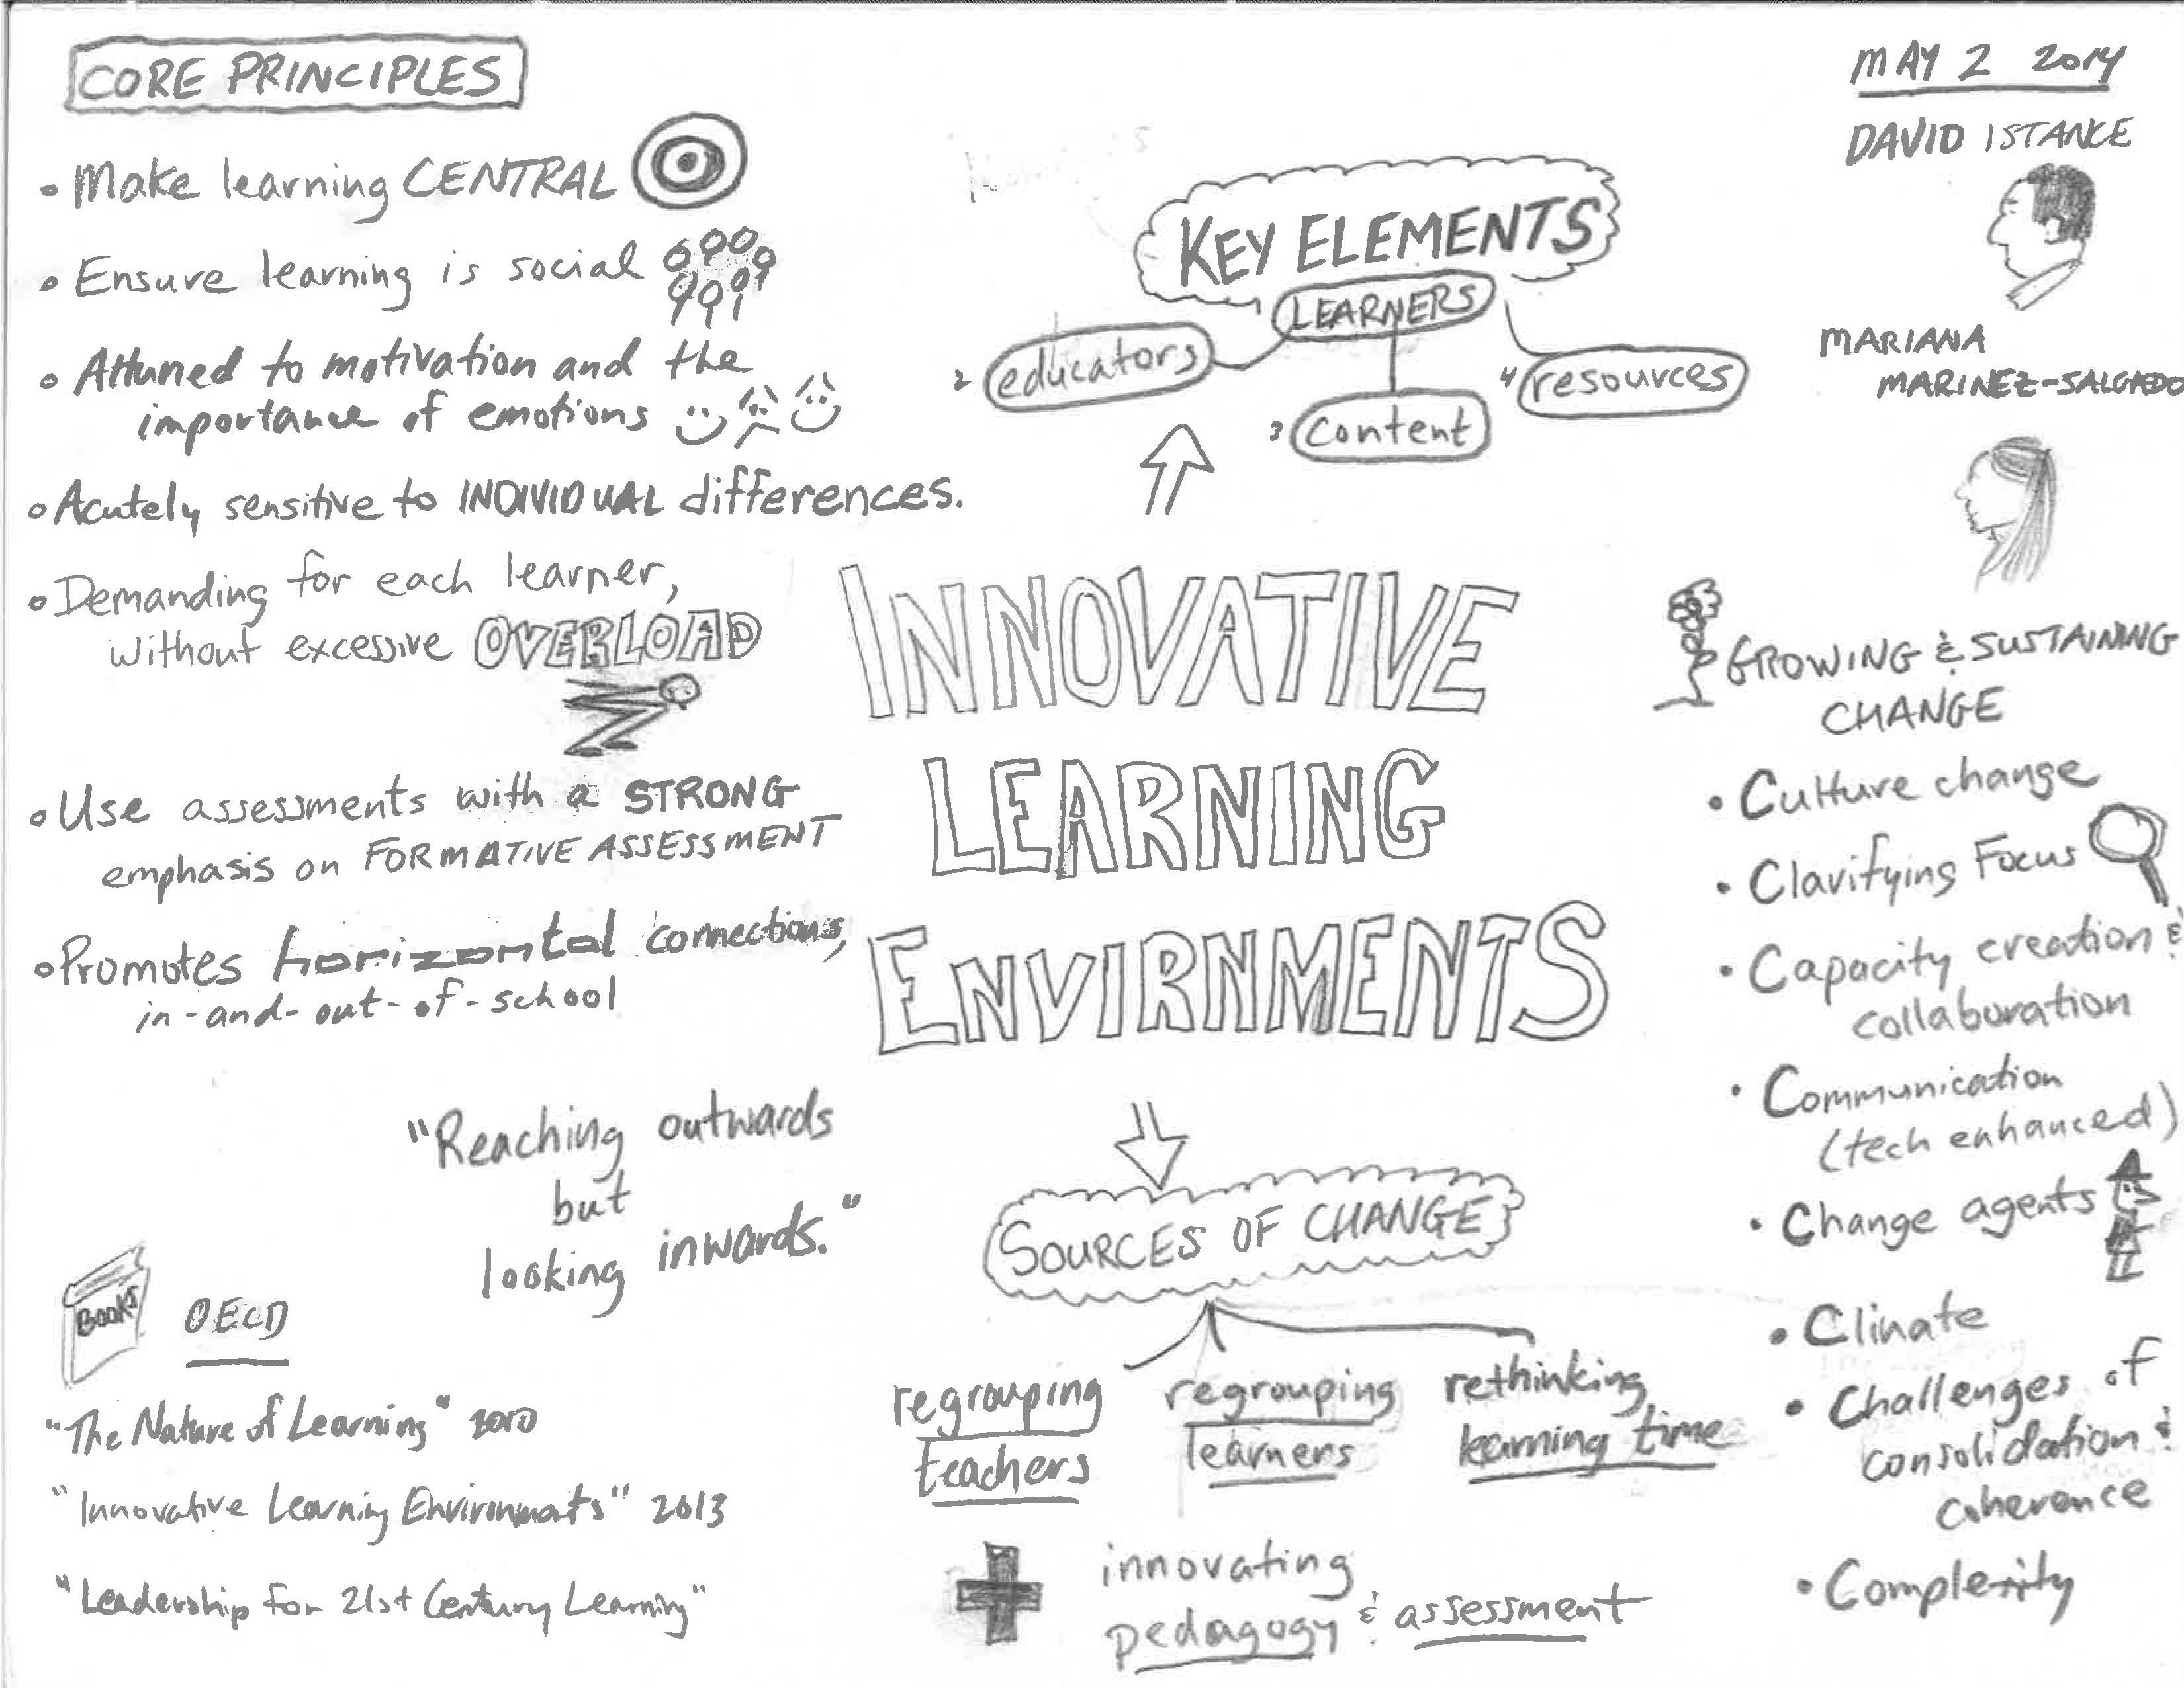 CORE PRINCIPLES
• Make learning CENTRAL
• Ensure learning is social
• Attuned to motivation and the
importance of emotions
• Acutely sensitive to INDIVIDUAL differences.
• Demanding for each learner,
without excessive OVERLOAD
• Use assessments with a STRONG
emphasis on FORMATIVE ASSESSMENT
• Promotes horizontal connections,
in-and-out-of-school
"Reaching outwards
but
looking inwards."
BOOKS
OECD
"The Nature of Learning" 2010
"Innovative Learning Environments" 2013
"Leadership for 21st Century Learning"
KEY ELEMENTS
LEARNERS
2 educators
3 content
4 resources
INNOVATIVE
LEARNING
ENVIRNMENTS
SOURCES OF CHANGE
regrouping
teachers
regrouping
learners
rethinking
learning time
innovating
pedagogy & assessment
MAY 2 2014
DAVID ISTANCE
MARIANA
MARINEZ-SALGADO
GROWING & SUSTAINING
CHANGE
• Culture change
• Clarifying Focus
• Capacity creation &
collaboration
• Communication
(tech enhanced)
• Change agents
• Climate
• Challenges of
consolidation &
coherence
• Complexity